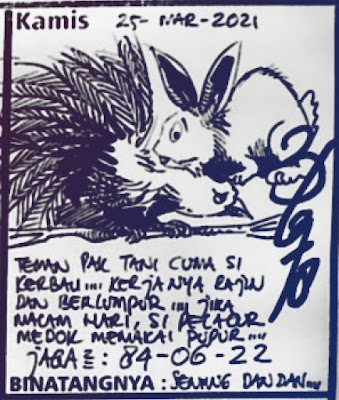 Kamis 25-MAR-2021
TEMAN PAK TANI CUMA SI
KERBAU,,,, KERJANYA RAJIN
DAN BERLUMPUR ,,,, JIKA
MACAM NARI, SI PELACUR
MEDOK MEMAKAI PUPUR....
JABAR : 84-06-22
BINATANGNYA : SENANG DANDAN....